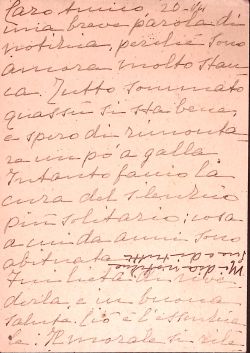 Caro Amico, 20-
una breve parola di
notizia, perchè sono
ancora molto stan
ca. Tutto sommato
quassù si sta bene,
e spero di rimonta-
re un pò a galla
Intanto faccio la
cura del silenzio
più solitario; cosa
a cui da anni sono
abituata
Fui lieta di rive
derla, e in buona
salute, ciò è l'essenzia
le. Il morale si rile